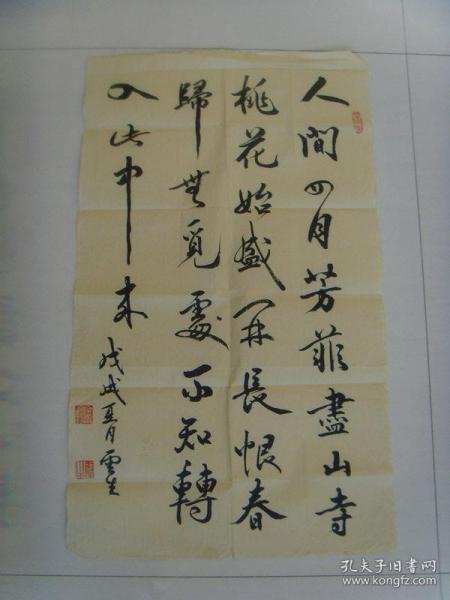 人間四月芳菲盡山寺
桃花始盛開長恨春
歸無覓處不知轉
入此中來
戊戌
月
孔夫子旧书网
www.kongfz.com